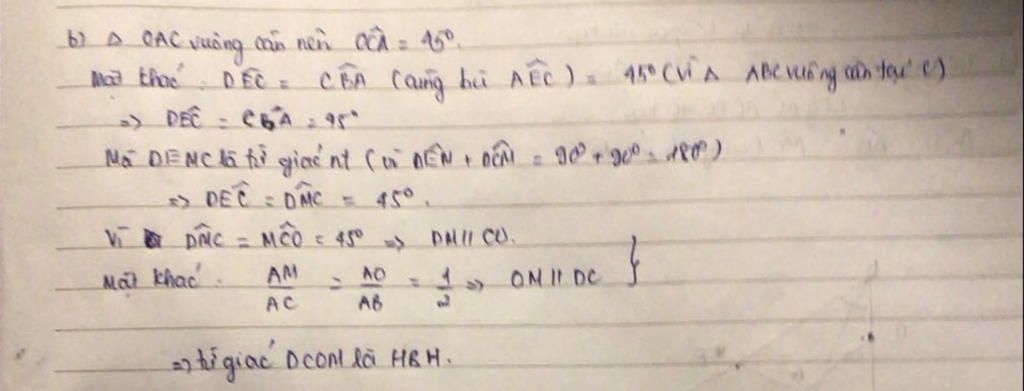 b) Δ OAC vuông cân nên OĈA = 45°.
Mặt khác : DÊC = CB̂A (cùng bù AÊC) = 45° (Vì Δ ABC vuông cân tại C)
=> DÊC = CB̂A = 45°
Mà DEMC là tứ giác nt (vì DÊM + DĈM = 90° + 90° = 180°)
=> DEĈ = DM̂C = 45°.
Vì DM̂C = MĈO = 45° => DM // CO.
Mặt khác : AM/AC = AO/AB = 1/2 => OM // DC }
=> tứ giác DCOM là HBH.